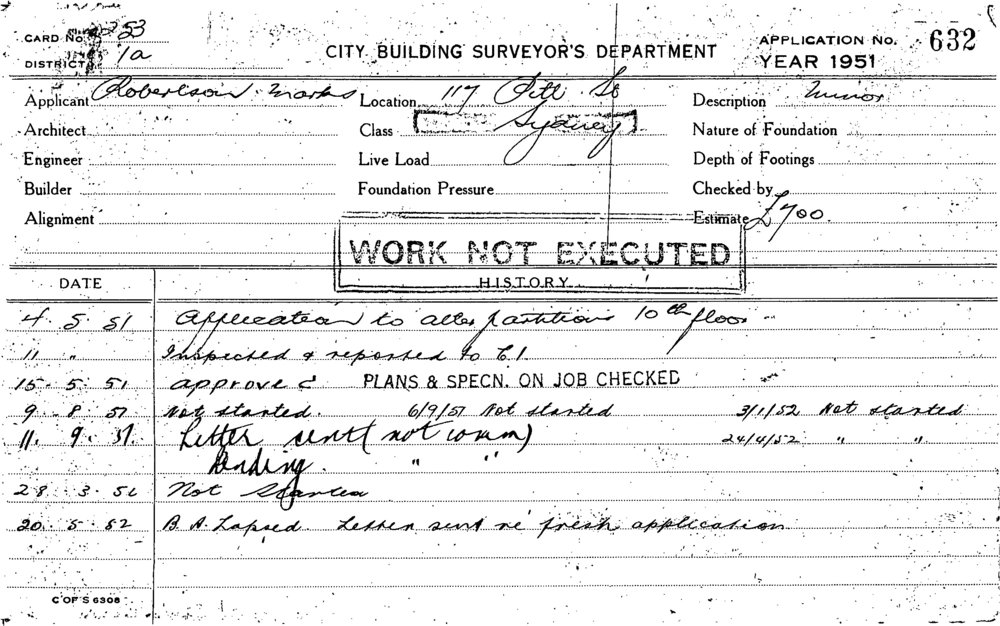 CARD No. 253
DISTRICT 1a
CITY BUILDING SURVEYOR'S DEPARTMENT
APPLICATION No. 632
YEAR 1951
Applicant Robertson Marks Location 117 Pitt St Description Minor
Architect Class Sydney Nature of Foundation
Engineer Live Load Depth of Footings
Builder Foundation Pressure Checked by
Alignment Estimate £700.
WORK NOT EXECUTED
DATE HISTORY
4 5 51 Application to alter partitions 10th floor
11 " Inspected & reported to C.I.
15. 5. 51 approved PLANS & SPECN. ON JOB CHECKED
9 8 51 Not started. 6/9/51 Not started 3/1/52 Not started
11. 9. 51. Letter sent (not comm) 24/4/52 " "
Pending. " "
28 3. 52 Not Started
20. 5. 52 B A Lapsed. Letter sent re fresh application
C OF S 6308